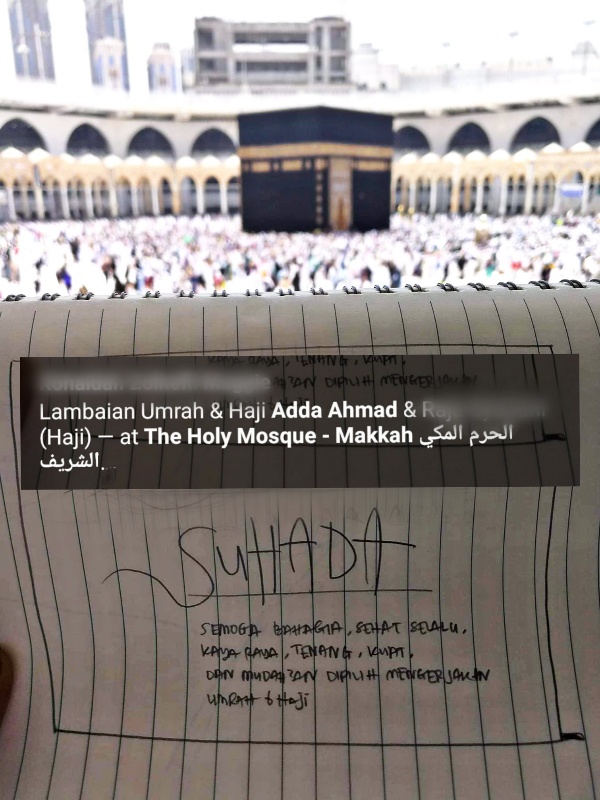 KAYA RAYA, TENANG, KUAT,
DIPILIH MENGERJAKAN
Lambaian Umrah & Haji Adda Ahmad &
(Haji) — at The Holy Mosque - Makkah الحرم المكي
الشريف...
SUHADA
SEMOGA BAHAGIA, SEHAT SELALU,
KAYA RAYA, TENANG, KUAT,
DAN MUDAHAN DIPILIH MENGERJAKAN
UMRAH & HaJi